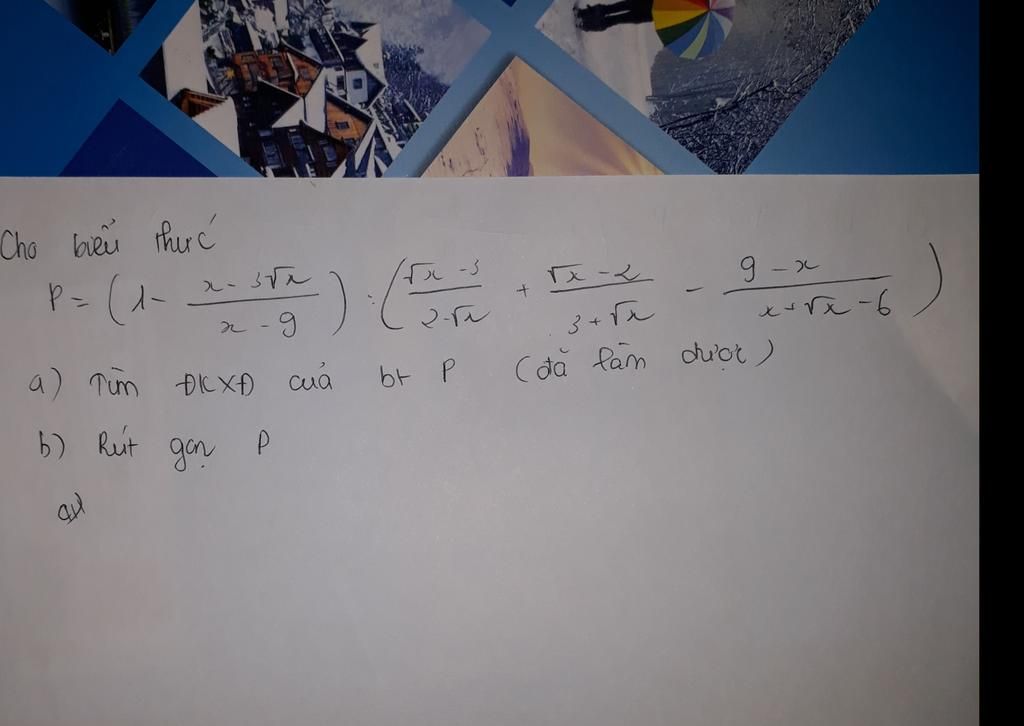 Cho biểu thức
P = (1 - \frac{x - 3\sqrt{x}}{x - 9}) : (\frac{\sqrt{x} - 3}{2 - \sqrt{x}} + \frac{\sqrt{x} - 2}{3 + \sqrt{x}} - \frac{9 - x}{x + \sqrt{x} - 6})
a) Tìm ĐKXĐ của bt P (đã làm được)
b) Rút gọn P